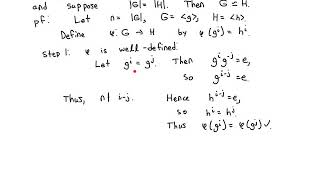 and suppose |G| = |H|. Then G ≅ H.
pf: Let n = |G|, G = <g>, H = <h>.
Define φ: G → H by φ(gⁱ) = hⁱ.
Step 1: φ is well-defined.
Let gⁱ = gʲ. Then gⁱg⁻ʲ = e,
so gⁱ⁻ʲ = e.
Thus, n | i-j. Hence hⁱ⁻ʲ = e,
so hⁱ = hʲ.
Thus φ(gⁱ) = φ(gʲ) ✓.